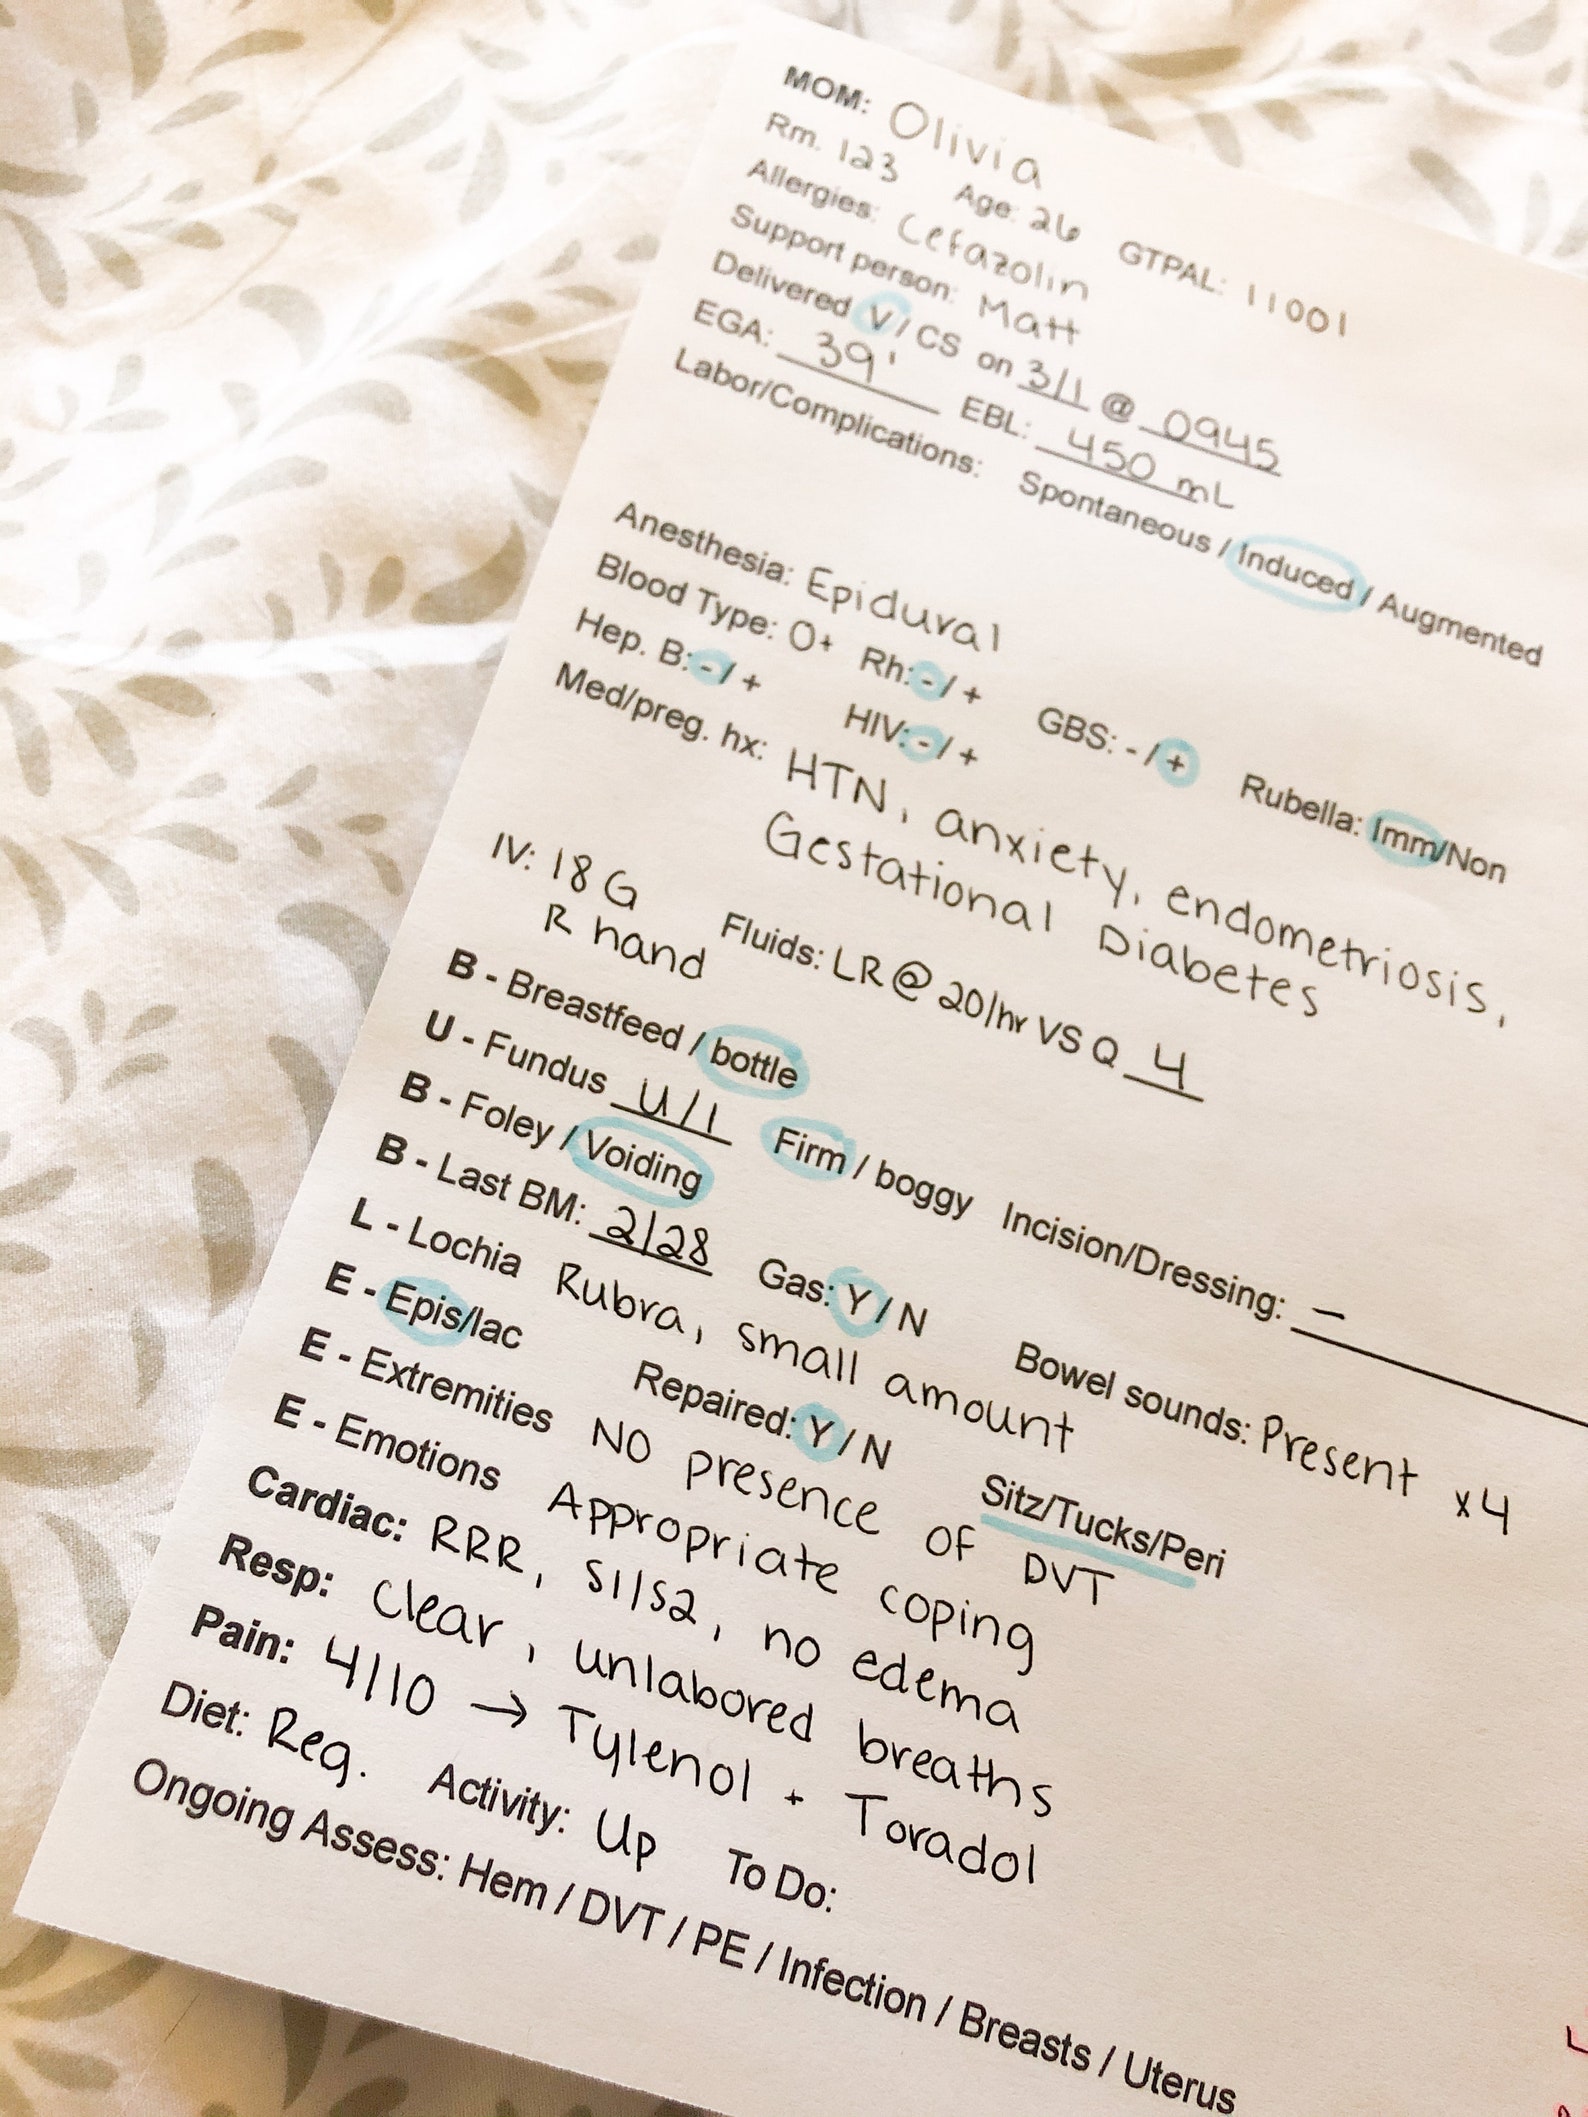 MOM: Olivia
Rm. 123 Age: 26 GTPAL: 11001
Allergies: Cefazolin
Support person: Matt
Delivered V / CS on 3/1 @ 0945
EGA: 39' EBL: 450 mL
Labor/Complications: Spontaneous / Induced / Augmented
Anesthesia: Epidural
Blood Type: O+ Rh: - / + GBS: - / + Rubella: Imm/Non
Hep. B: - / + HIV: - / +
Med/preg. hx: HTN, anxiety, endometriosis,
Gestational Diabetes
IV: 18 G Fluids: LR @ 20/hr VS Q 4
R hand
B - Breastfeed / bottle
U - Fundus U/1 Firm / boggy Incision/Dressing: -
B - Foley / Voiding
B - Last BM: 2/28 Gas: Y / N Bowel sounds: Present x4
L - Lochia Rubra, small amount
E - Epis/lac Repaired: Y / N Sitz/Tucks/Peri
E - Extremities NO presence OF DVT
E - Emotions Appropriate coping
Cardiac: RRR, S1/S2, no edema
Resp: Clear, unlabored breaths
Pain: 4/10 → Tylenol + Toradol
Diet: Reg. Activity: Up To Do:
Ongoing Assess: Hem / DVT / PE / Infection / Breasts / Uterus